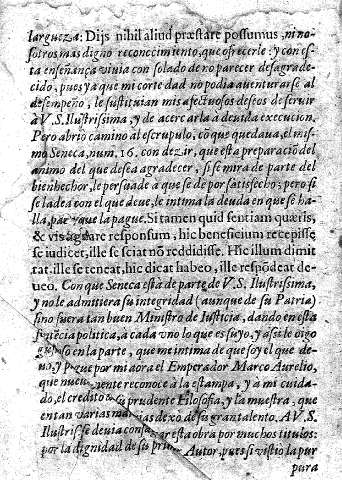 largueza: Dijs nihil aliud præstare possumus, ni no-
sotros mas digno reconocimiento, que ofrecerle: y con es-
ta enseñança viuia con solado de no parecer desagrade-
cido, pues ya que mi cortedad no podia auenturarse al
desempeño, le sustituian mis afectuosos deseos de seruir
à V. S. Ilustrissima, y de acercarla à deuida execucion.
Pero abrio camino al escrupulo, cō que quedaua, el mis-
mo Seneca, num. 16. con dezir, que esta preparaciō del
animo del que desea agradecer, si se mira de parte del
bienhechor, le persuade a que se dè por satisfecho; pero si
se ladea con el que deue, le intima la deuda en que se ha-
lla, para que la pague. Si tamen quid sentiam quæris,
& vis agnare responsum, hic beneficium recepisse
se iudicet, ille se sciat nō reddidisse. Hic illum dimit
tat. ille se teneat, hic dicat habeo, ille respōdeat de-
ueo. Con que Seneca està de parte de V. S. Ilustrissima,
y no le admitiera su integridad (aunque de su Patria)
sino fuera tan buen Ministro de Iusticia, dando en esta
politica, à cada vno lo que es suyo, y assi le oigo
en la parte, que me intima de que soy el que de-
uo, y pague por mi aora el Emperador Marco Aurelio,
que nueuamente reconoce à la estampa, y a mi cuida-
do, el credito a su prudente Filosofia, y la muestra, que
en tan varias materias dexò de su gran talento. A V. S.
Ilustriss. se deuia consagrar esta obra por muchos titulos:
por la dignidad de su Autor, pues si vistio la pur
pura